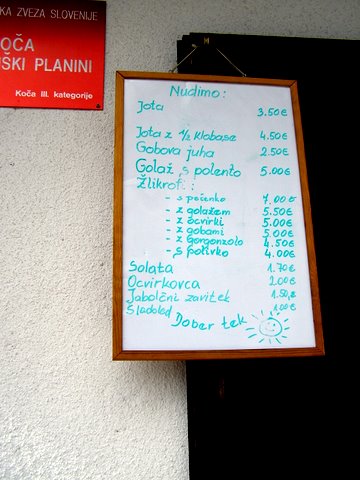 KA ZVEZA SLOVENIJE
KOČA
ŠKI PLANINI
Koča III. kategorije
Nudimo:
Jota 3.50€
Jota z 1/2 klobase 4.50€
Gobova juha 2.50€
Golaž s polento 5.00€
Žlikrofi:
- s pečenko 7.00€
- z golažem 5.50€
- z ocvirki 5.00€
- z gobami 5.00€
- z gorgonzolo 4.50€
- s polivko 4.00€
Solata 1.70€
Ocvirkovca 2.00€
Jabolčni zavitek 1.50€
Sladoled 1.00€
Dober tek